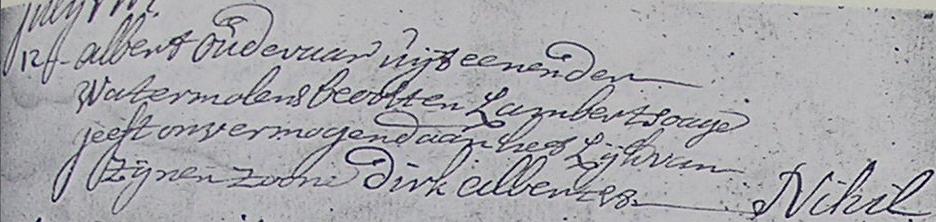 12 f albert oudevaar uijt eenenden
watermolens beoosten Lambertsoage
geeft onvermogend aan het Lijk van
Zijnen zoone Dirk albertes Nihil